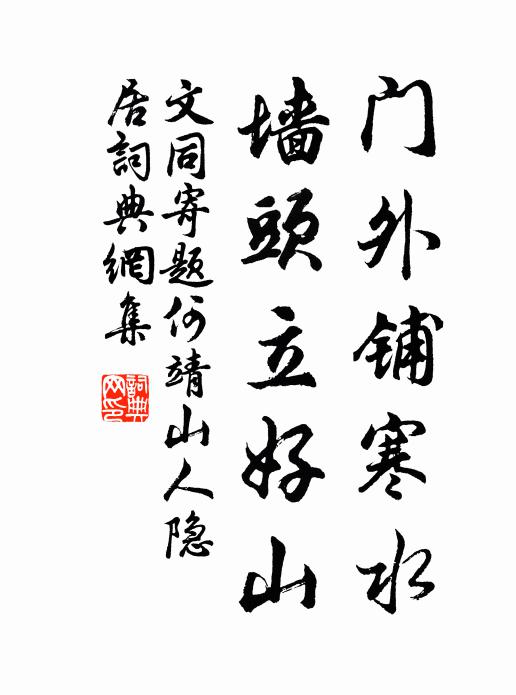 门外铺寒水
墙頭立好山
文同寄題何靖山人隐
居詞典網集
詞典
网印